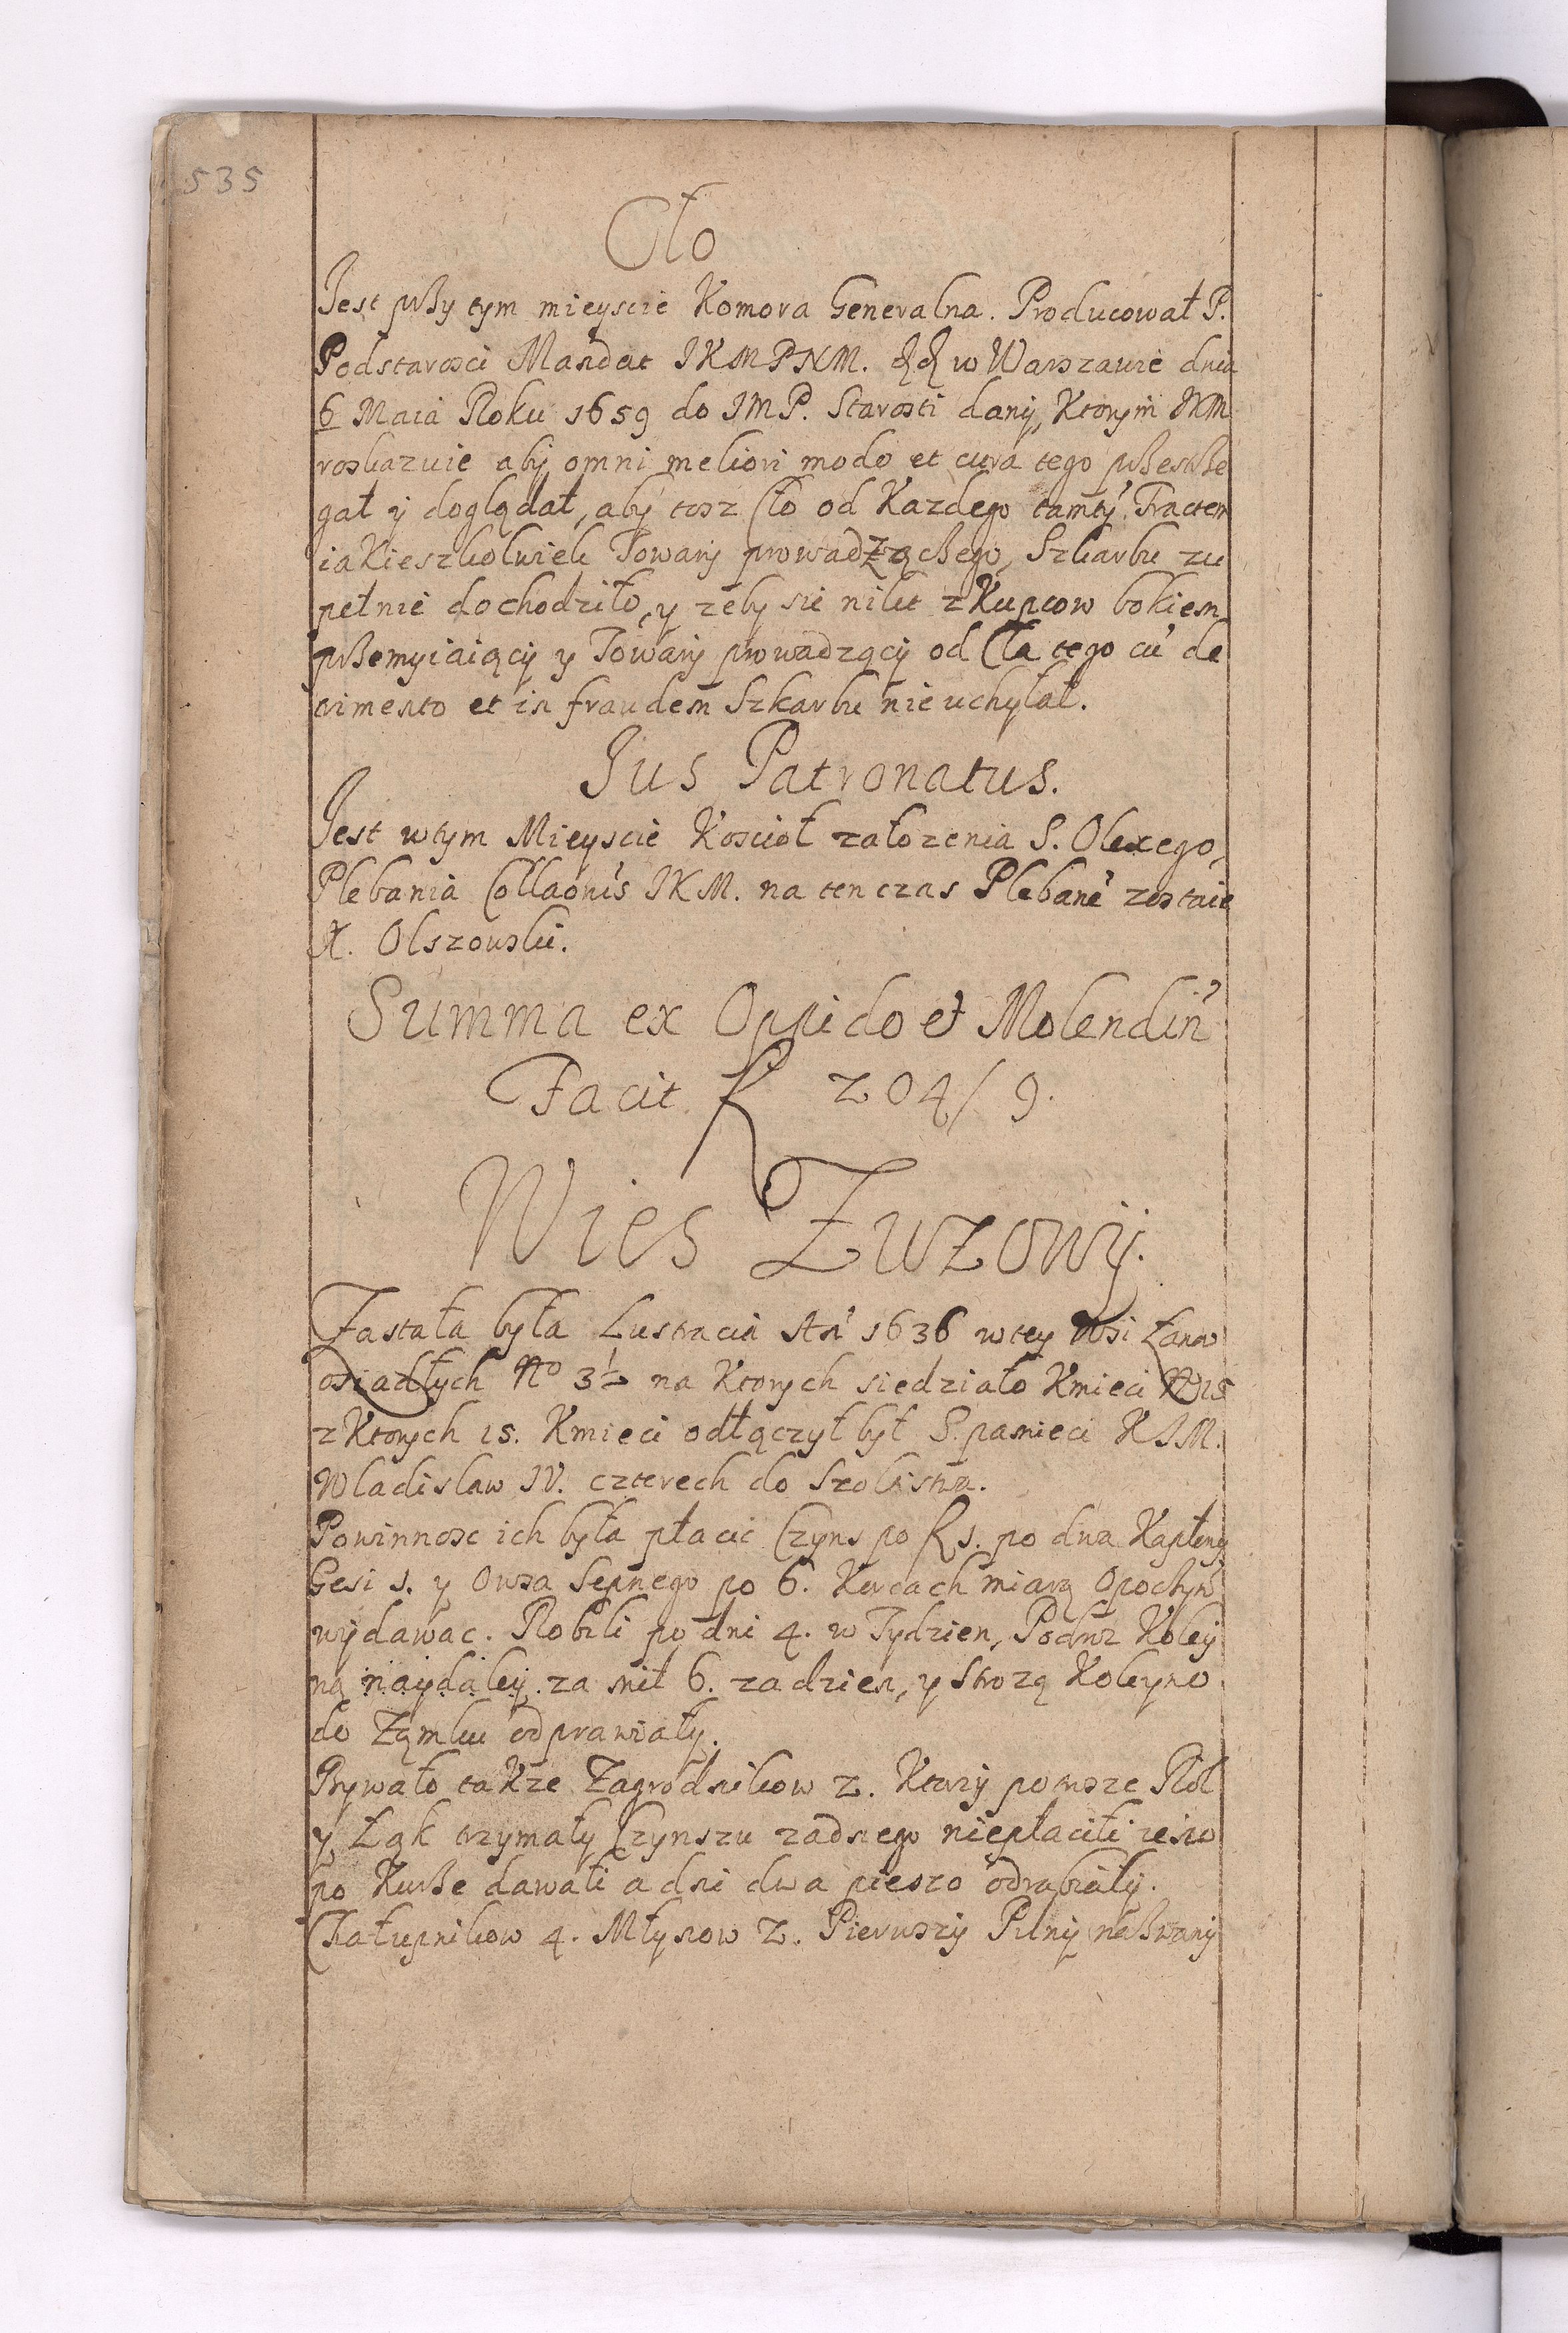 535
Cło
Jest przy tym mieyscie Komora Generalna. Producował P.
Podstarosci Mandat JKMPNM. w Warszawie dnia
6 Maia Roku 1659 do JMP. Starosti dany, Ktorym JKM
roskazuie aby omni meliori modo et cura tego przestrze
gał y doglądał, aby tosz Cło od Kazdego tamtÿ Tractem
iakieszkolwiek Towary prowadzącego, Szkarbu zu
pełnie dochodziło, y zeby sie nikt z Kupcow bokiem
przemyiaiący y Towary prowadzący od Cła tego cū de
trimento et in fraudem Szkarbu nie uchylał.
Jus Patronatus.
Jest w tym Mieyscie Kosciół załozenia S. Olexego,
Plebania Collaonis JKM. na ten czas Plebanē zostaie
X. Olszowski.
Summa ex Oppido et Molendin
Facit f 204/9.
Wies Zuzowy.
Zastała była Lustracia An 1636 w tey Wsi Łanow
osiadłych No 3½ na Ktorych siedziało Kmieci No 15
z Ktorych 15. Kmieci odłączył był S. pamieci KJM.
Wladislaw IV. czterech do Szolistwa.
Powinnosc ich była płacic Czyns po f 1. po dwa Kapłony
Gesi 1. y Owsa Sepnego po 6. Korcach miarą Opoczyn
wydawac. Robili po dni 4. w Tydzien, Podroz Koley
ną naydaley za mil 6. za dzien, y Strozą Koleyno
do Zamku odprawiały.
Bywało takze Zagrodnikow 2. Ktorzy pomsze Rol
y Łąk trzymały Czynszu zadnego niepłacili ieno
po Kurze dawali a dni dwa pieszo odrabiały.
Chałupnikow 4. Młynow 2. Pierwszy Pilny nazwany